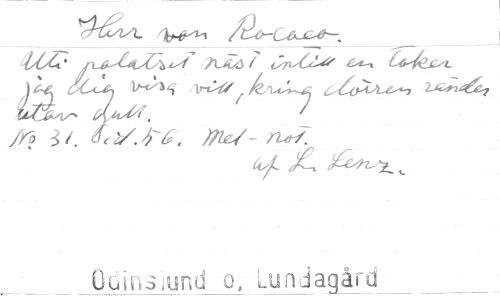 Herr von Rococo.
Uti palatset näst intill en toker
jag dig visa vill, kring dörren ränder
utav gull.
No 31. Sid. 56. Mel-not.
af L. Lenz.
Odinslund o, Lundagård